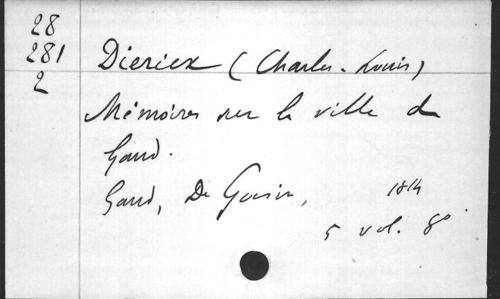 28
281
2
Diericx (Charles-Louis)
Mémoires sur la ville de
Gand.
Gand, De Goesin, 1814
5 vol. 8º